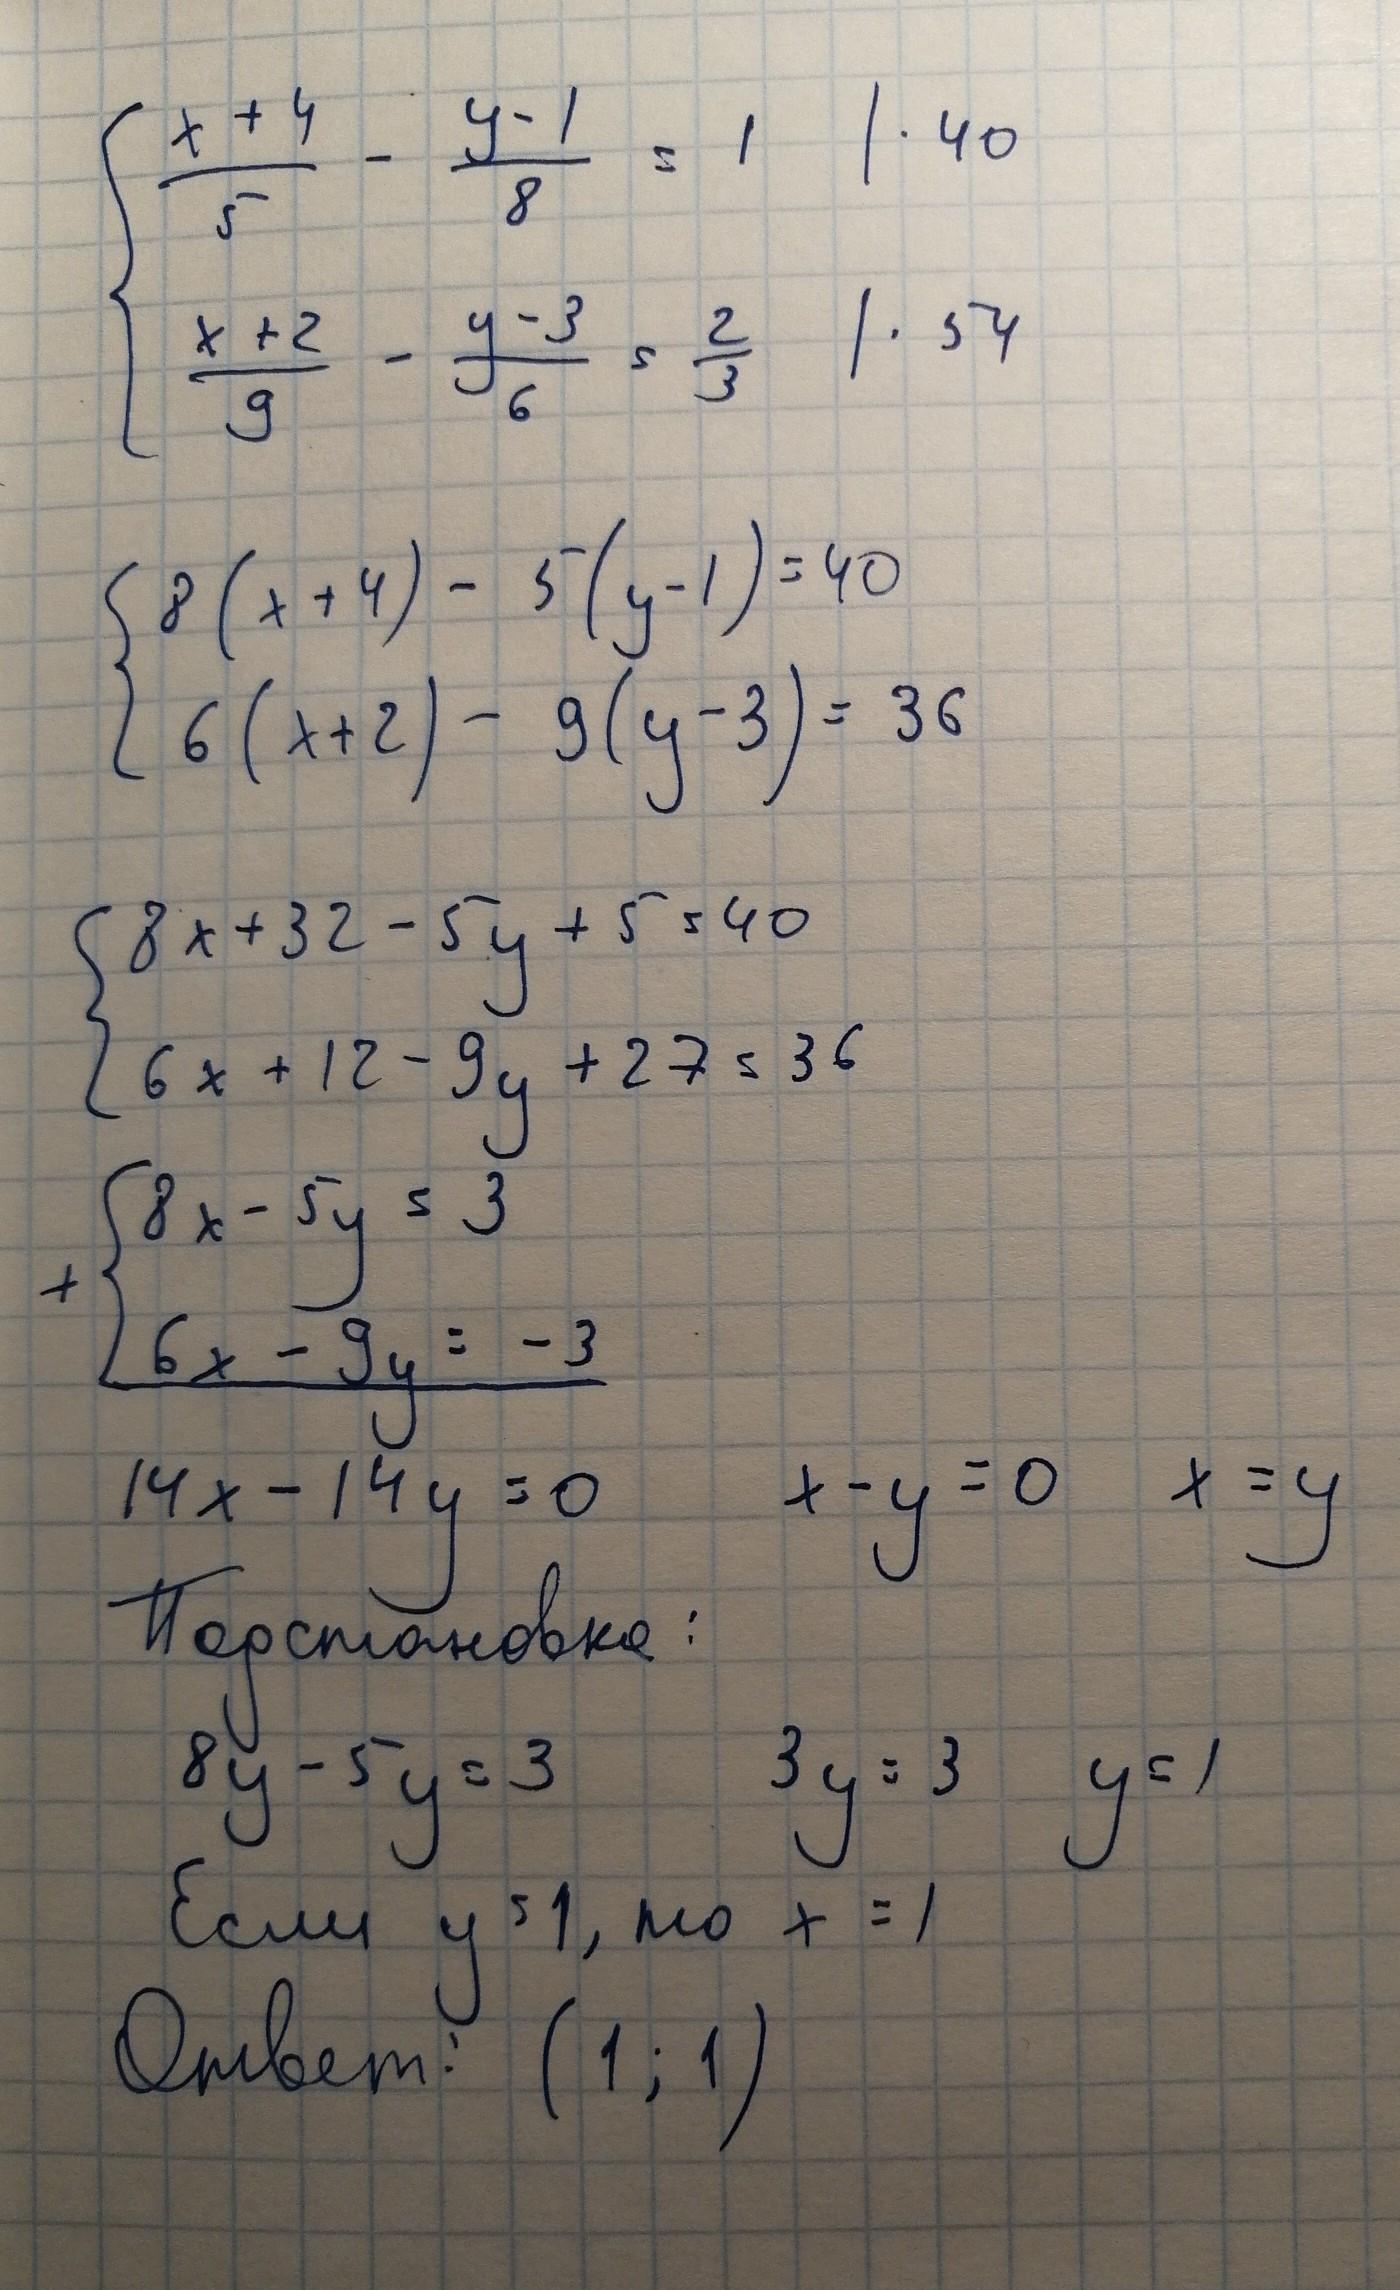 { (x+4)/5 - (y-1)/8 = 1 | · 40
(x+2)/9 - (y-3)/6 = 2/3 | · 54
{ 8(x+4) - 5(y-1) = 40
6(x+2) - 9(y-3) = 36
{ 8x + 32 - 5y + 5 = 40
6x + 12 - 9y + 27 = 36
+ { 8x - 5y = 3
6x - 9y = -3
14x - 14y = 0 x - y = 0 x = y
Подстановка:
8y - 5y = 3 3y = 3 y = 1
Если y = 1, то x = 1
Ответ: (1; 1)